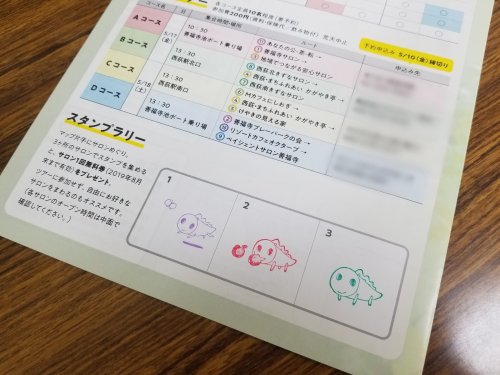 各コース定員10名程度(要予約)
参加費200円(資料・保険代・飲み物付) 荒天中止
予約申込み 5/10(金)締切り
コース名 日 集合時間・場所 ルート 申込み先
Aコース
5/17(金)
10:30
善福寺池ボート乗り場
あなたの公・差・転→
善福寺サロン→
地域でつながる安心サロン
Bコース
13:30
西荻駅北口
西荻北きずなサロン→
西荻・まちふれあい かがやき亭→
西荻南きずなサロン
Cコース
5/18(土)
10:30
西荻駅南口
Mカフェにしおぎ→
西荻・まちふれあい かがやき亭→
けやきの見える家
Dコース
13:30
善福寺池ボート乗り場
善福寺プレーパークの会→
リゾートカフェオクターブ→
ペイシェントサロン善福寺
スタンプラリー
マップ片手にサロンめぐり。
3ヶ所のサロンでスタンプを集める
と、サロン1回無料券(2019年8月
末まで有効)をプレゼント。
ツアーに参加せず、自由にお好きな
サロンをまわるのもオススメです。
(各サロンのオープン時間は中面で
確認してください。)
1
2
3